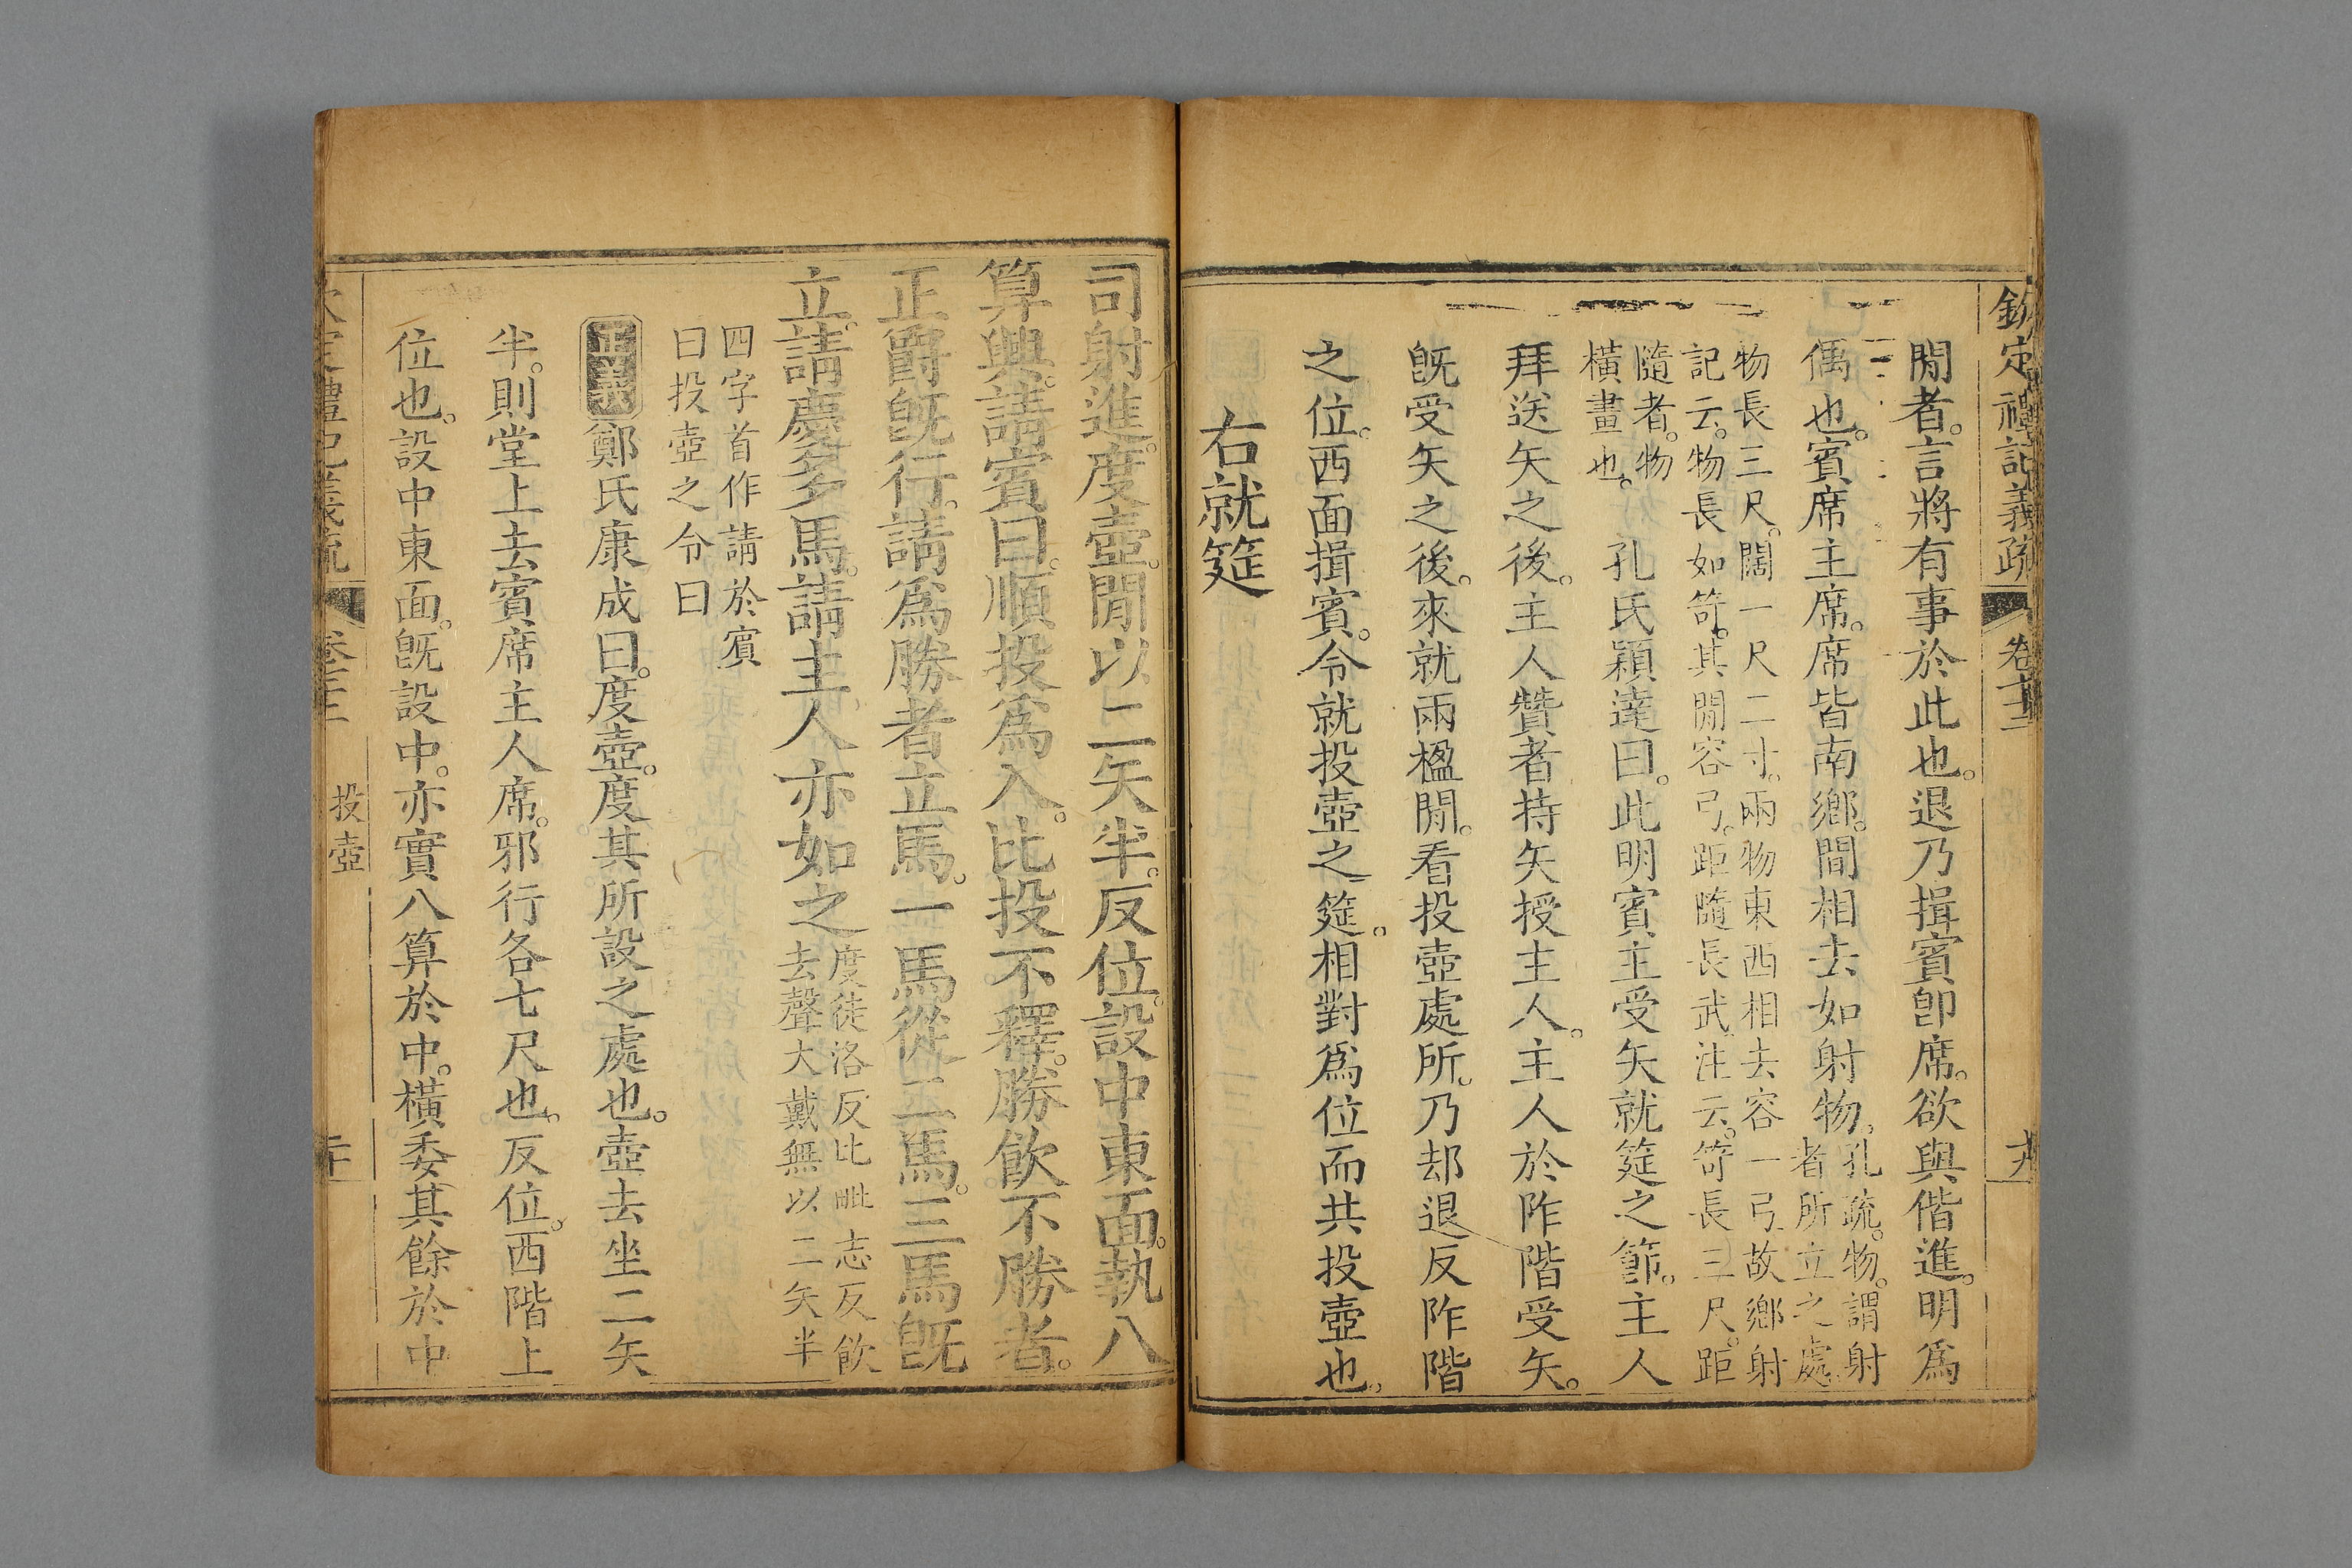 欽定禮記義疏 卷七十三 十九
閒者。言將有事於此也。退乃揖賓卽席。欲與偕進。明爲
偶也。賓席主席。席皆南鄉。間相去如射物。孔疏。物。謂射
者所立之處。
物長三尺。闊一尺二寸。兩物東西相去容一弓故鄉射
記云。物長如笴。其閒容弓。距隨長武。注云。笴長三尺。距
隨者。物
橫畫也。
孔氏穎達曰。此明賓主受矢就筵之節。主人
拜送矢之後。主人贊者持矢授主人。主人於阼階受矢。
旣受矢之後。來就兩楹閒。看投壺處所。乃却退反阼階
之位。西面揖賓。令就投壺之筵。相對爲位而共投壺也。
右就筵
司射進度壺。閒以二矢半。反位。設中東面。執八
算興。請賓曰。順投爲入。比投不釋。勝飮不勝者。
正爵旣行。請爲勝者立馬。一馬從二馬。三馬旣
立。請慶多馬。請主人亦如之
度徒洛反比毗志反飮
去聲大戴無以二矢半
四字首作請於賓
曰投壺之令曰
正義 鄭氏康成曰。度壺。度其所設之處也。壺去坐二矢
半。則堂上去賓席主人席。邪行各七尺也。反位。西階上
位也。設中東面。旣設中。亦實八算於中。橫委其餘於中
禮記義疏 投壺 二十